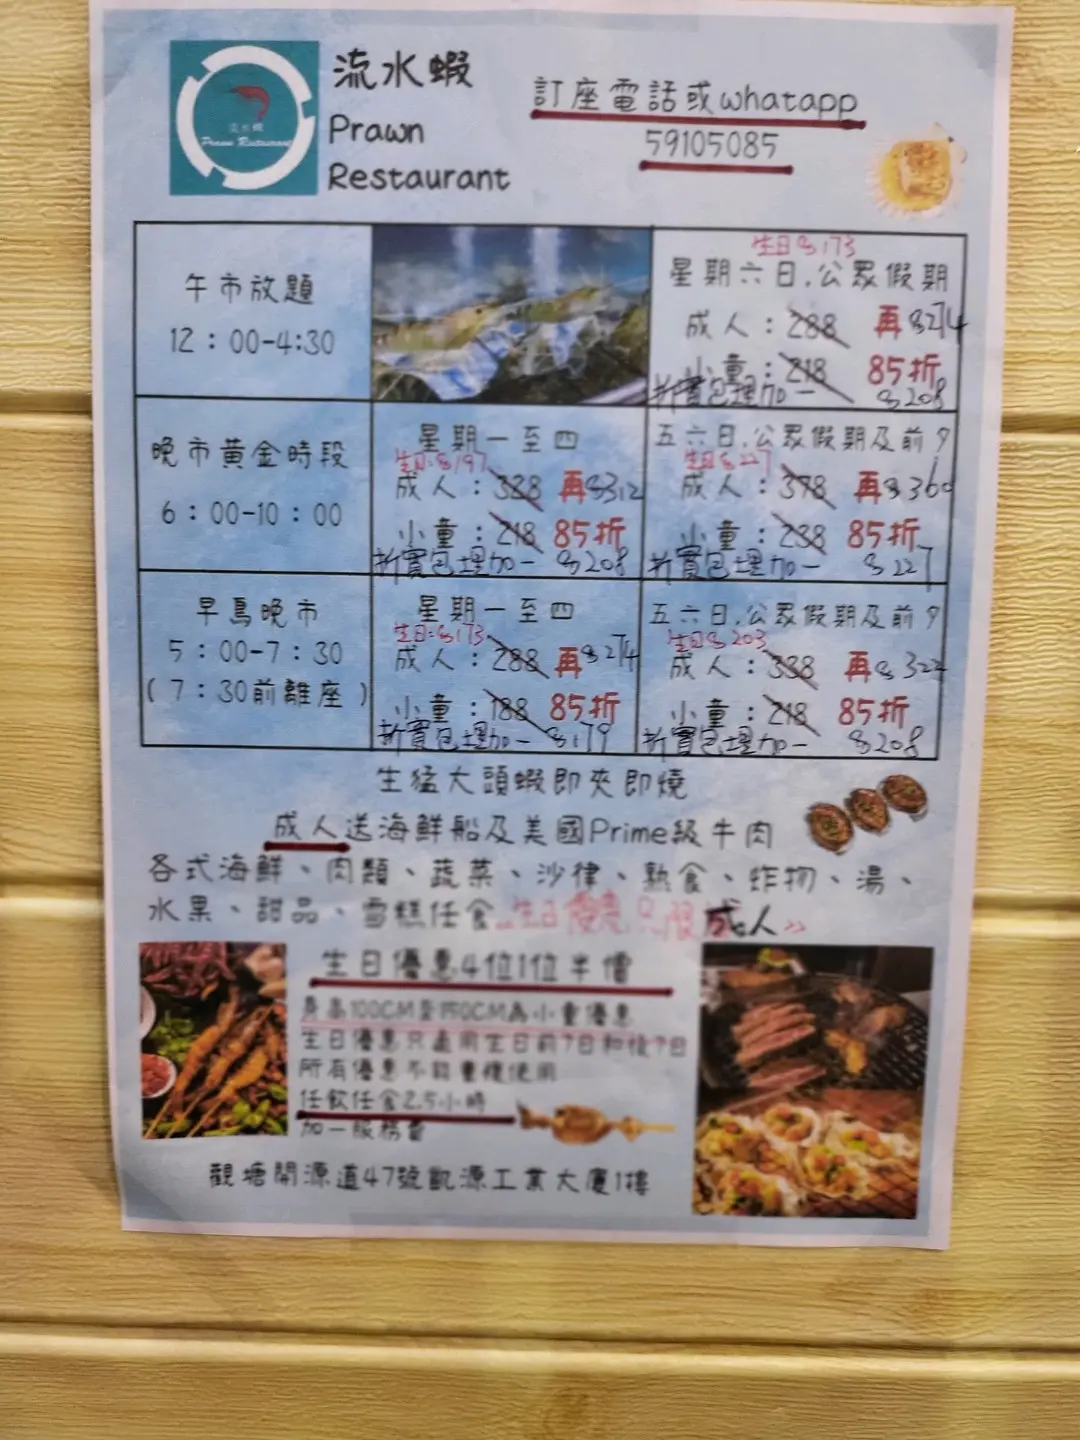 流水蝦
Prawn
Restaurant
流水蝦
Prawn Restaurant
訂座電話或whatapp
59105085
午市放題
12：00-4:30
生日$173
星期六日,公眾假期
成人：288 再$274
小童：218 85折
折實包埋加一 $208
晚市黃金時段
6：00-10：00
星期一至四
生日:$197
成人：328 再$312
小童：218 85折
折實包埋加一 $208
五六日,公眾假期及前夕
生日$227
成人：378 再$360
小童：238 85折
折實包埋加一 $227
早鳥晚市
5：00-7：30
(7：30前離座)
星期一至四
生日:$173
成人：288 再$274
小童：188 85折
折實包埋加一 $179
五六日,公眾假期及前夕
生日$203
成人：338 再$322
小童：218 85折
折實包埋加一 $208
生猛大頭蝦即夾即燒
成人送海鮮船及美國Prime級牛肉
各式海鮮、肉類、蔬菜、沙律、熟食、炸物、湯、
水果、甜品、雪糕任食 生日優惠只限成人
生日優惠4位1位半價
身高100CM至150CM為小童優惠
生日優惠只適用生日前7日和後7日
所有優惠不能重複使用
任飲任食2.5小時
加一服務費
觀塘開源道47號凱源工業大廈1樓